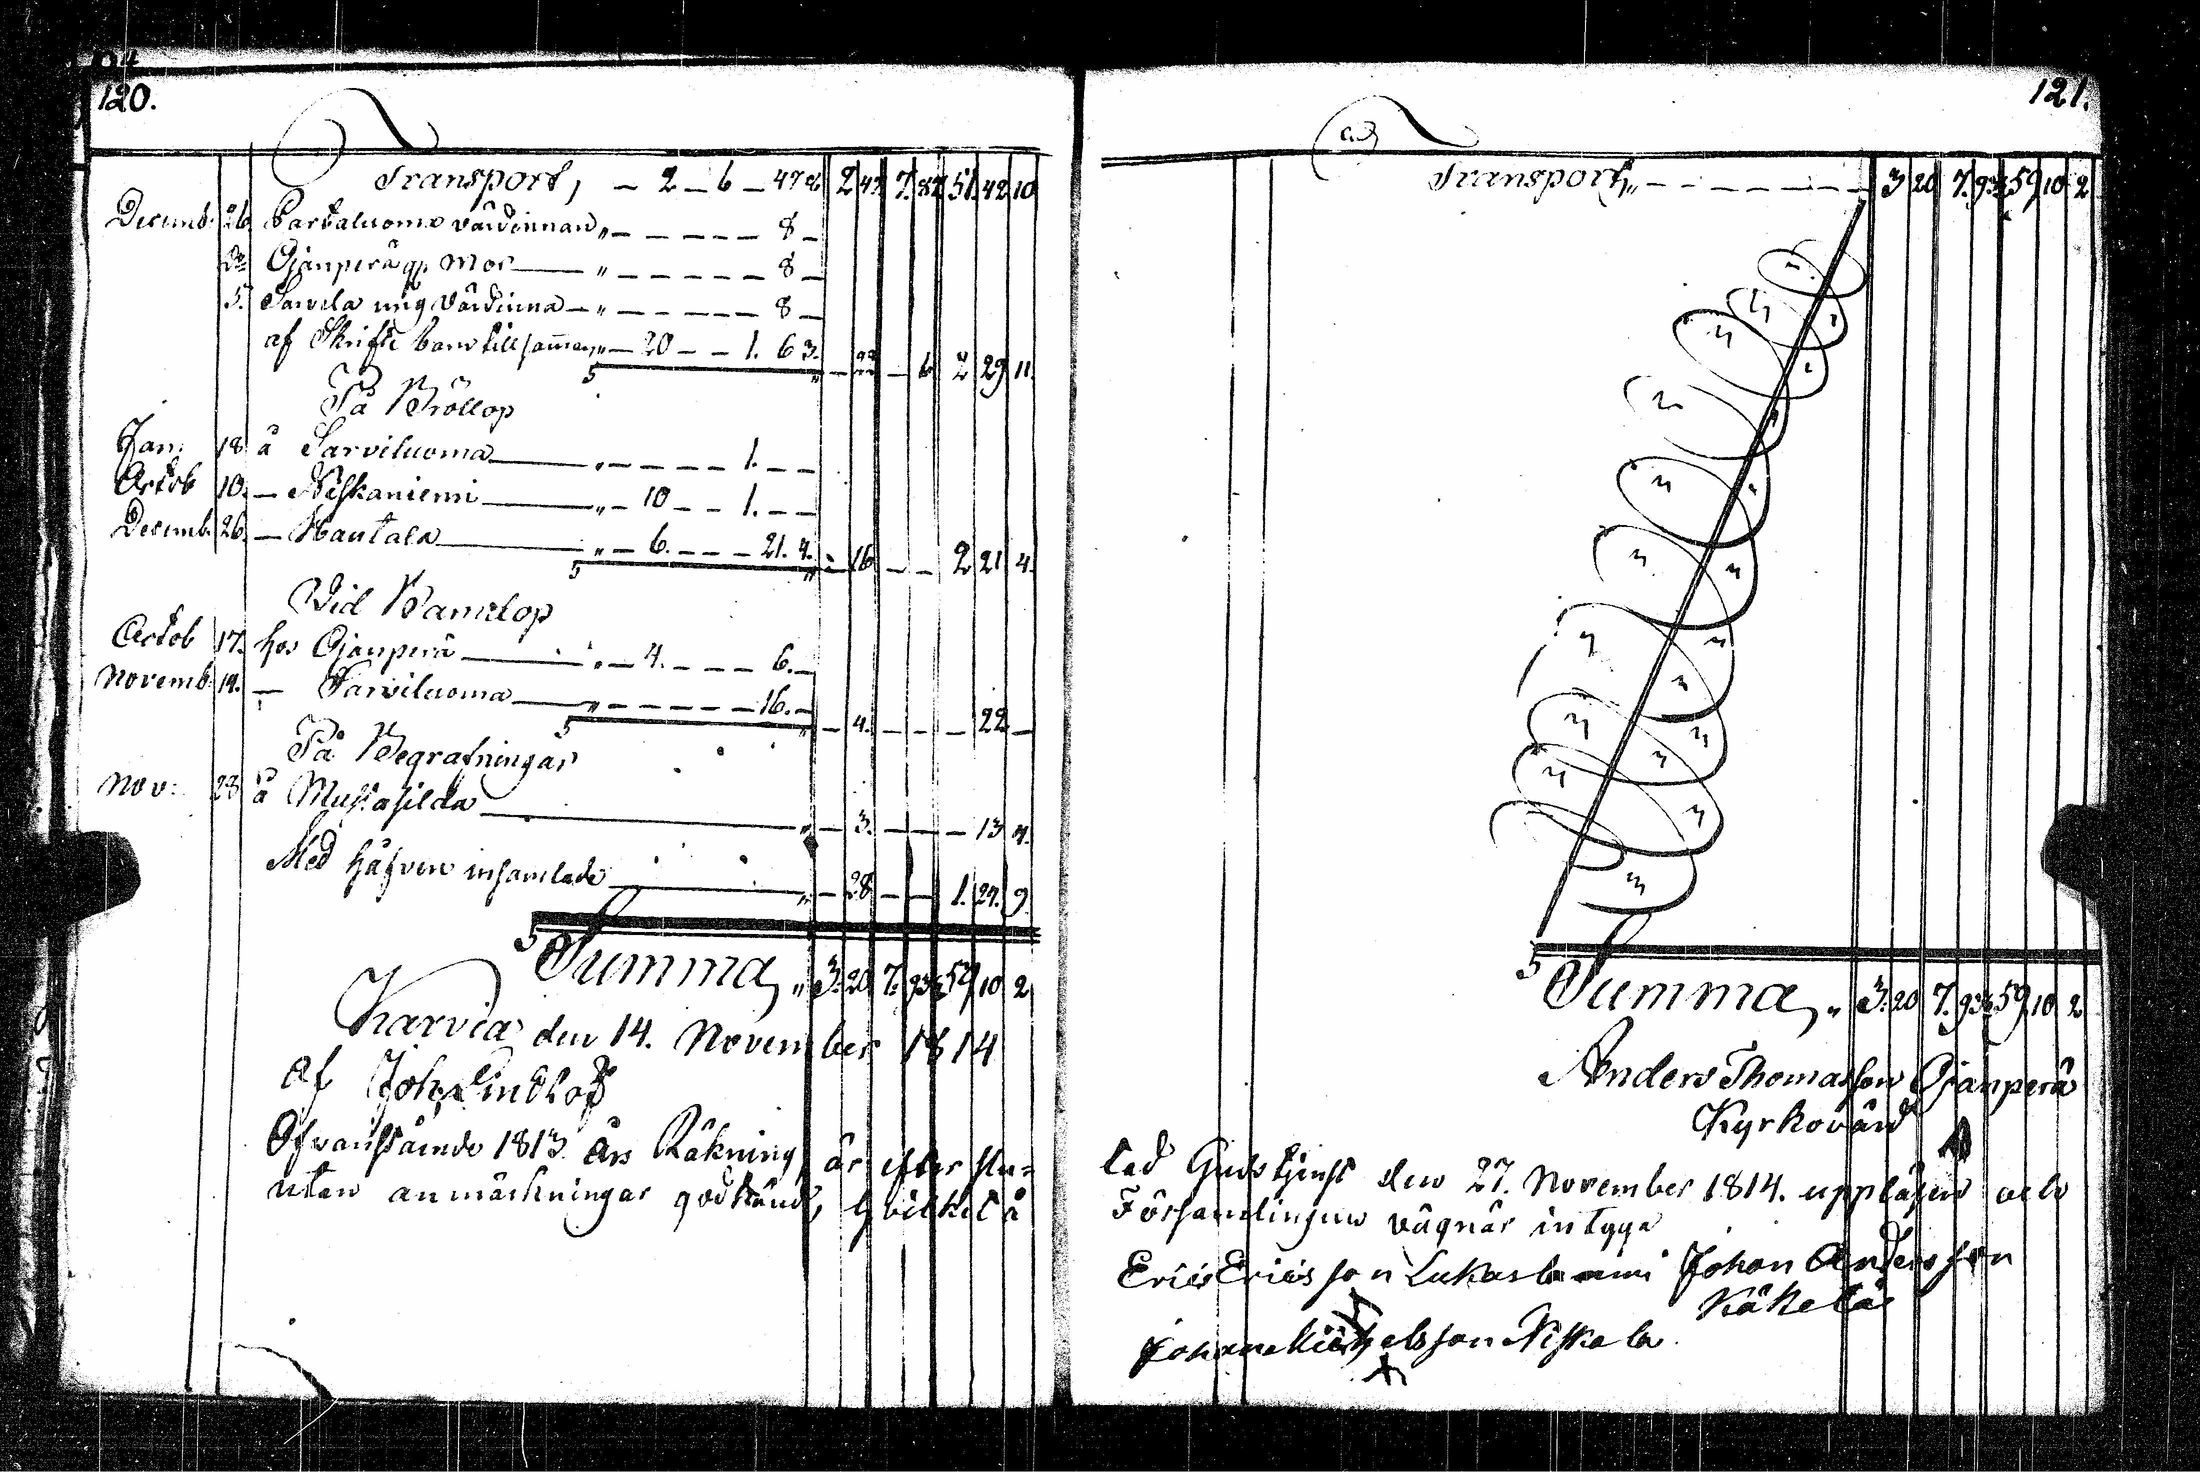 120.
Transport, — 2 — 6 — 47 2 7. 51 42 10
Decemb. 26 Partaluoma värdinnan „ — — — — — 8 —
Do Ojanperä gl. Mor — „ — — — — — 8 —
5. Sarvela ung Värdinna — „ — — — — — 8 —
af Skrifte barn tillsamen „ — 20 — — 1. 6 3. — — 6 2 29 11.
På Bröllop
Jan: 18 å Sarviluoma — „ — — — — 1. — —
Octob 10. — Niskaniemi — „ — 10 — — 1. — —
Decemb. 26. — Hautala — „ — 6. — — — 21. 4. — 16 — — 2 21 4.
Vid Barndop
Octob 17. hos Ojanperä — „ — 4. — — — 6. —
Novemb. 14. — Sarviluoma — „ — — — — — 16. — — 4. — — — 22 —
På Begrafningar
Nov: 28 å Mustasilda — „ — 3. — — — 13 4.
Med håfven insamlade — „ — 28 — — 1. 24. 9.
Summa, „ 3. 20 7. 93½ 59 10 2
Karvia den 14. November 1814
af Joh. Lindlöf
Ofvanstående 1813 års Räkning, är efter slu=
utan anmärkningar godkänd, hvilket å
121.
Transport, „ — — — — — — 3 20 7. 93½ 59 10 2
Summa, „ 3. 20 7. 93½ 59 10 2
Anders Thomasson Ojanperä
Kyrkovärd
tad Gudstjenst den 27. November 1814. uppläsen och
Församlingens vägnar intyga
Eric Ericsson Lukaslammi Johan Andersson
Käkelä
Johan Michelsson Niskala